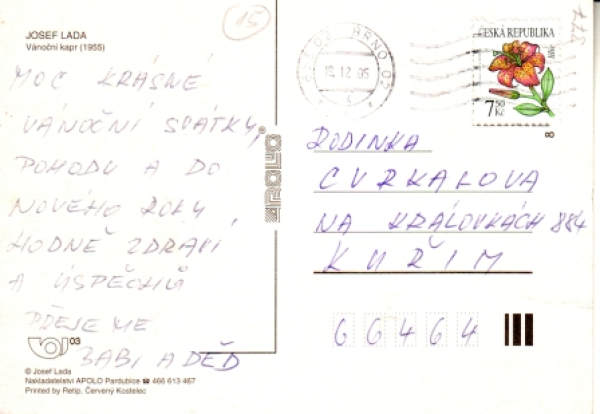 15
JOSEF LADA
Vánoční kapr (1955)
MOC KRÁSNÉ
VÁNOČNÍ SVÁTKY,
POHODU A DO
NOVÉHO ROKU
HODNĚ ZDRAVÍ
A ÚSPĚCHŮ
PŘEJEME
BABI A DĚD
03
© Josef Lada
Nakladatelství APOLO Pardubice ☎ 466 613 467
Printed by Retip, Červený Kostelec
APOLO®
BRNO 02
19.12.05
ČESKÁ REPUBLIKA
7 50 Kč
8
RODINKA
CVRKALOVA
NA KRÁLOVKÁCH 884
KUŘIM
66464